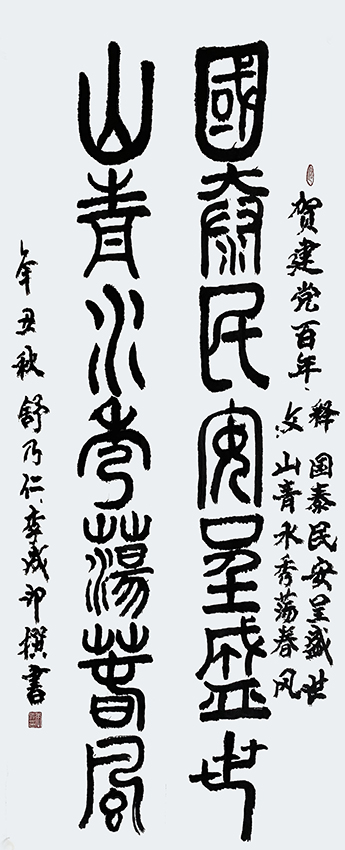 贺建党百年
释 国泰民安呈盛世
文: 山青水秀荡春风
國泰民安呈盛世
山青水秀蕩春風
辛丑秋 舒乃仁、李成印撰書